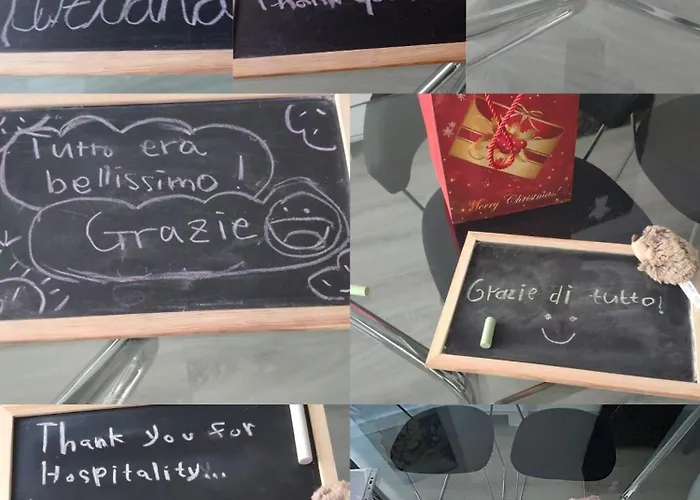 Tutto era
bellissimo!
Grazie
Merry Christmas!
Grazie di tutto!
Thank you for
Hospitality...